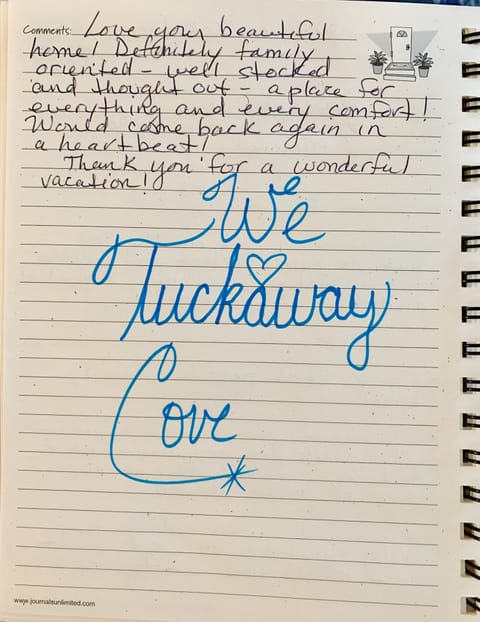 Comments: Love your beautiful
home! Definitely family
oriented - well stocked
and thought out - a place for
everything and every comfort!
Would come back again in
a heartbeat!
Thank you for a wonderful
vacation!
We
Tuckaway
Cove
www.journalsunlimited.com